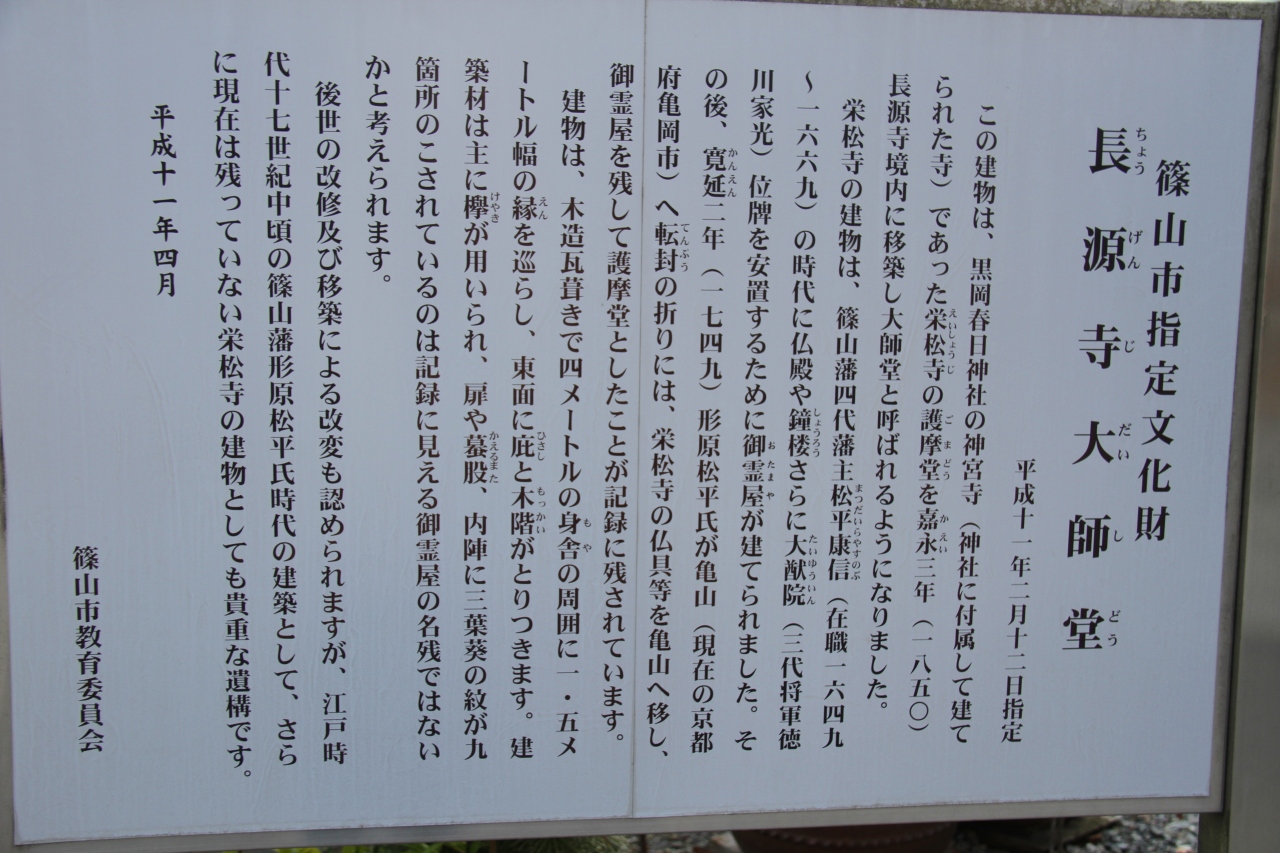 篠山市指定文化財
長源寺大師堂
ちょうげんじだいしどう
平成十一年二月十二日指定
この建物は、黒岡春日神社の神宮寺（神社に付属して建て
られた寺）であった栄松寺の護摩堂を嘉永三年（一八五〇）
えいしょうじ ごまどう かえい
長源寺境内に移築し大師堂と呼ばれるようになりました。
栄松寺の建物は、篠山藩四代藩主松平康信（在職一六四九
まつだいらやすのぶ
～一六六九）の時代に仏殿や鐘楼さらに大猷院（三代将軍徳
しょうろう たいゆういん
川家光）位牌を安置するために御霊屋が建てられました。そ
おたまや
の後、寛延二年（一七四九）形原松平氏が亀山（現在の京都
かんえん
府亀岡市）へ転封の折りには、栄松寺の仏具等を亀山へ移し、
てんぷう
御霊屋を残して護摩堂としたことが記録に残されています。
建物は、木造瓦葺きで四メートルの身舎の周囲に一・五メ
もや
ートル幅の縁を巡らし、東面に庇と木階がとりつきます。建
えん ひさし もっかい
築材は主に欅が用いられ、扉や蟇股、内陣に三葉葵の紋が九
けやき かえるまた
箇所のこされているのは記録に見える御霊屋の名残ではない
かと考えられます。
後世の改修及び移築による改変も認められますが、江戸時
代十七世紀中頃の篠山藩形原松平氏時代の建築として、さら
に現在は残っていない栄松寺の建物としても貴重な遺構です。
平成十一年四月
篠山市教育委員会